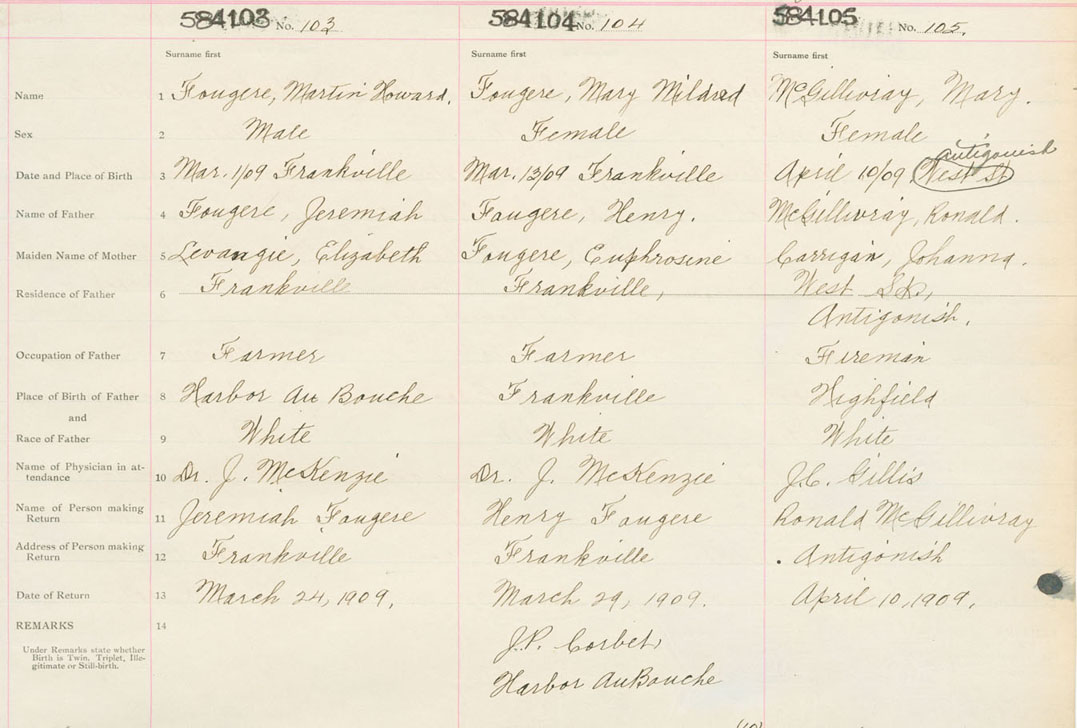 584103 No. 103 584104 No. 104 584105 No. 105.
Surname first Surname first Surname first
Name 1 Fougere, Martin Howard. Fougere, Mary Mildred McGillivray, Mary.
Sex 2 Male Female Female
Antigonish
Date and Place of Birth 3 Mar. 1/09 Frankville Mar. 13/09 Frankville April 10/09 West St
Name of Father 4 Fougere, Jeremiah Fougere, Henry. McGillivray, Ronald.
Maiden Name of Mother 5 Levangie, Elizabeth Fougere, Euphrosine Carrigan, Johanna.
Residence of Father 6 Frankville Frankville, West St,
Antigonish.
Occupation of Father 7 Farmer Farmer Fireman
Place of Birth of Father 8 Harbor Au Bouche Frankville Highfield
and
Race of Father 9 White White White
Name of Physician in at-
tendance 10 Dr. J. McKenzie Dr. J. McKenzie J.C. Gillis
Name of Person making
Return 11 Jeremiah Fougere Henry Fougere Ronald McGillivray
Address of Person making
Return 12 Frankville Frankville Antigonish
Date of Return 13 March 24, 1909. March 29, 1909. April 10, 1909.
REMARKS 14
Under Remarks state whether
Birth is Twin, Triplet, Ille-
gitimate or Still-birth.
J.P. Corbet
Harbor AuBouche